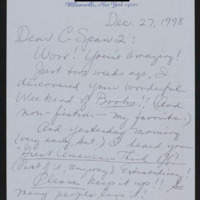 Williamsville, New York 14221
Dec. 27, 1998
Dear C-Span 2:
Wow! You're amazing!
Just two weeks ago, I
discovered your wonderful
Weekend of Books!! (And
non-fiction - my favorite)
And yesterday morning
(very early, Sat.) I heard your
"Great American Think
it, anyway) Extraordinary!
Please keep it up!! So
many people